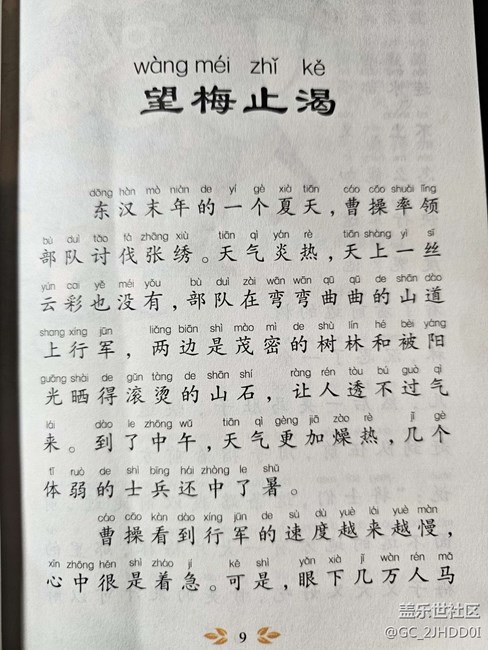 wàng méi zhǐ kě
望梅止渴
dōng hàn mò nián de yí gè xià tiān cáo cāo shuài lǐng
东汉末年的一个夏天，曹操率领
bù duì tǎo fá zhāng xiù tiān qì yán rè tiān shàng yì sī
部队讨伐张绣。天气炎热，天上一丝
yún cai yě méi yǒu bù duì zài wān wān qū qū de shān dào
云彩也没有，部队在弯弯曲曲的山道
shang xíng jūn liǎng biān shì mào mì de shù lín hé bèi yáng
上行军，两边是茂密的树林和被阳
guāng shài de gǔn tàng de shān shí ràng rén tòu bú guò qì
光晒得滚烫的山石，让人透不过气
lái dào le zhōng wǔ tiān qì gèng jiā zào rè jǐ gè
来。到了中午，天气更加燥热，几个
tǐ ruò de shì bīng hái zhòng le shǔ
体弱的士兵还中了暑。
cáo cāo kàn dào xíng jūn de sù dù yuè lái yuè màn
曹操看到行军的速度越来越慢，
xīn zhōng hěn shì zháo jí kě shì yǎn xià jǐ wàn rén mǎ
心中很是着急。可是，眼下几万人马
9
盖乐世社区
@GC_2JHDD0I